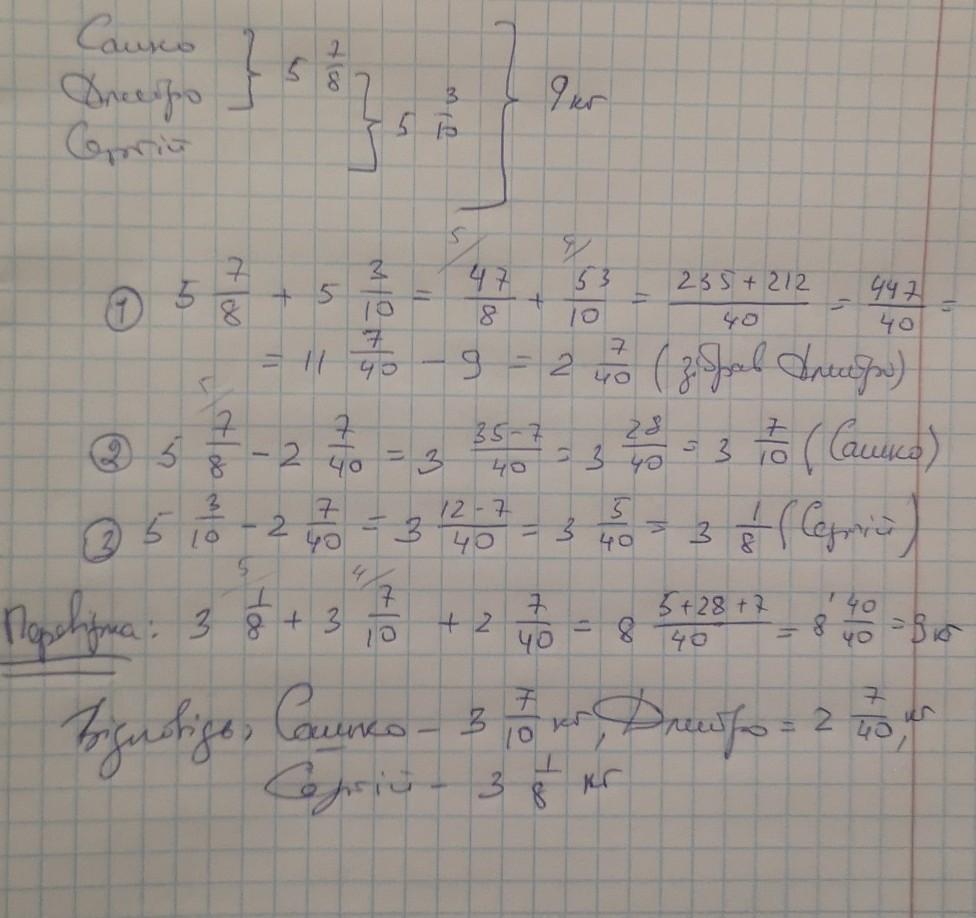 Сашко } 5 7/8
Дмитро } 5 3/10 } 9 кг
Сергій
① 5 7/8 + 5 3/10 = 47/8 + 53/10 = 235+212/40 = 447/40 =
= 11 7/40 - 9 = 2 7/40 (зібрав Дмитро)
② 5 7/8 - 2 7/40 = 3 35-7/40 = 3 28/40 = 3 7/10 (Сашко)
③ 5 3/10 - 2 7/40 = 3 12-7/40 = 3 5/40 = 3 1/8 (Сергій)
Перевірка: 3 1/8 + 3 7/10 + 2 7/40 = 8 5+28+7/40 = 8 40/40 = 9 кг
Відповідь, Сашко - 3 7/10 кг, Дмитро = 2 7/40, кг
Сергій - 3 1/8 кг